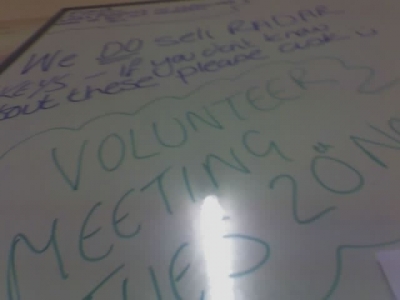 We DO sell RADAR
KEYS - If you don't know
about these please ask u
VOLUNTEER
MEETING
TUES 2ÖNO